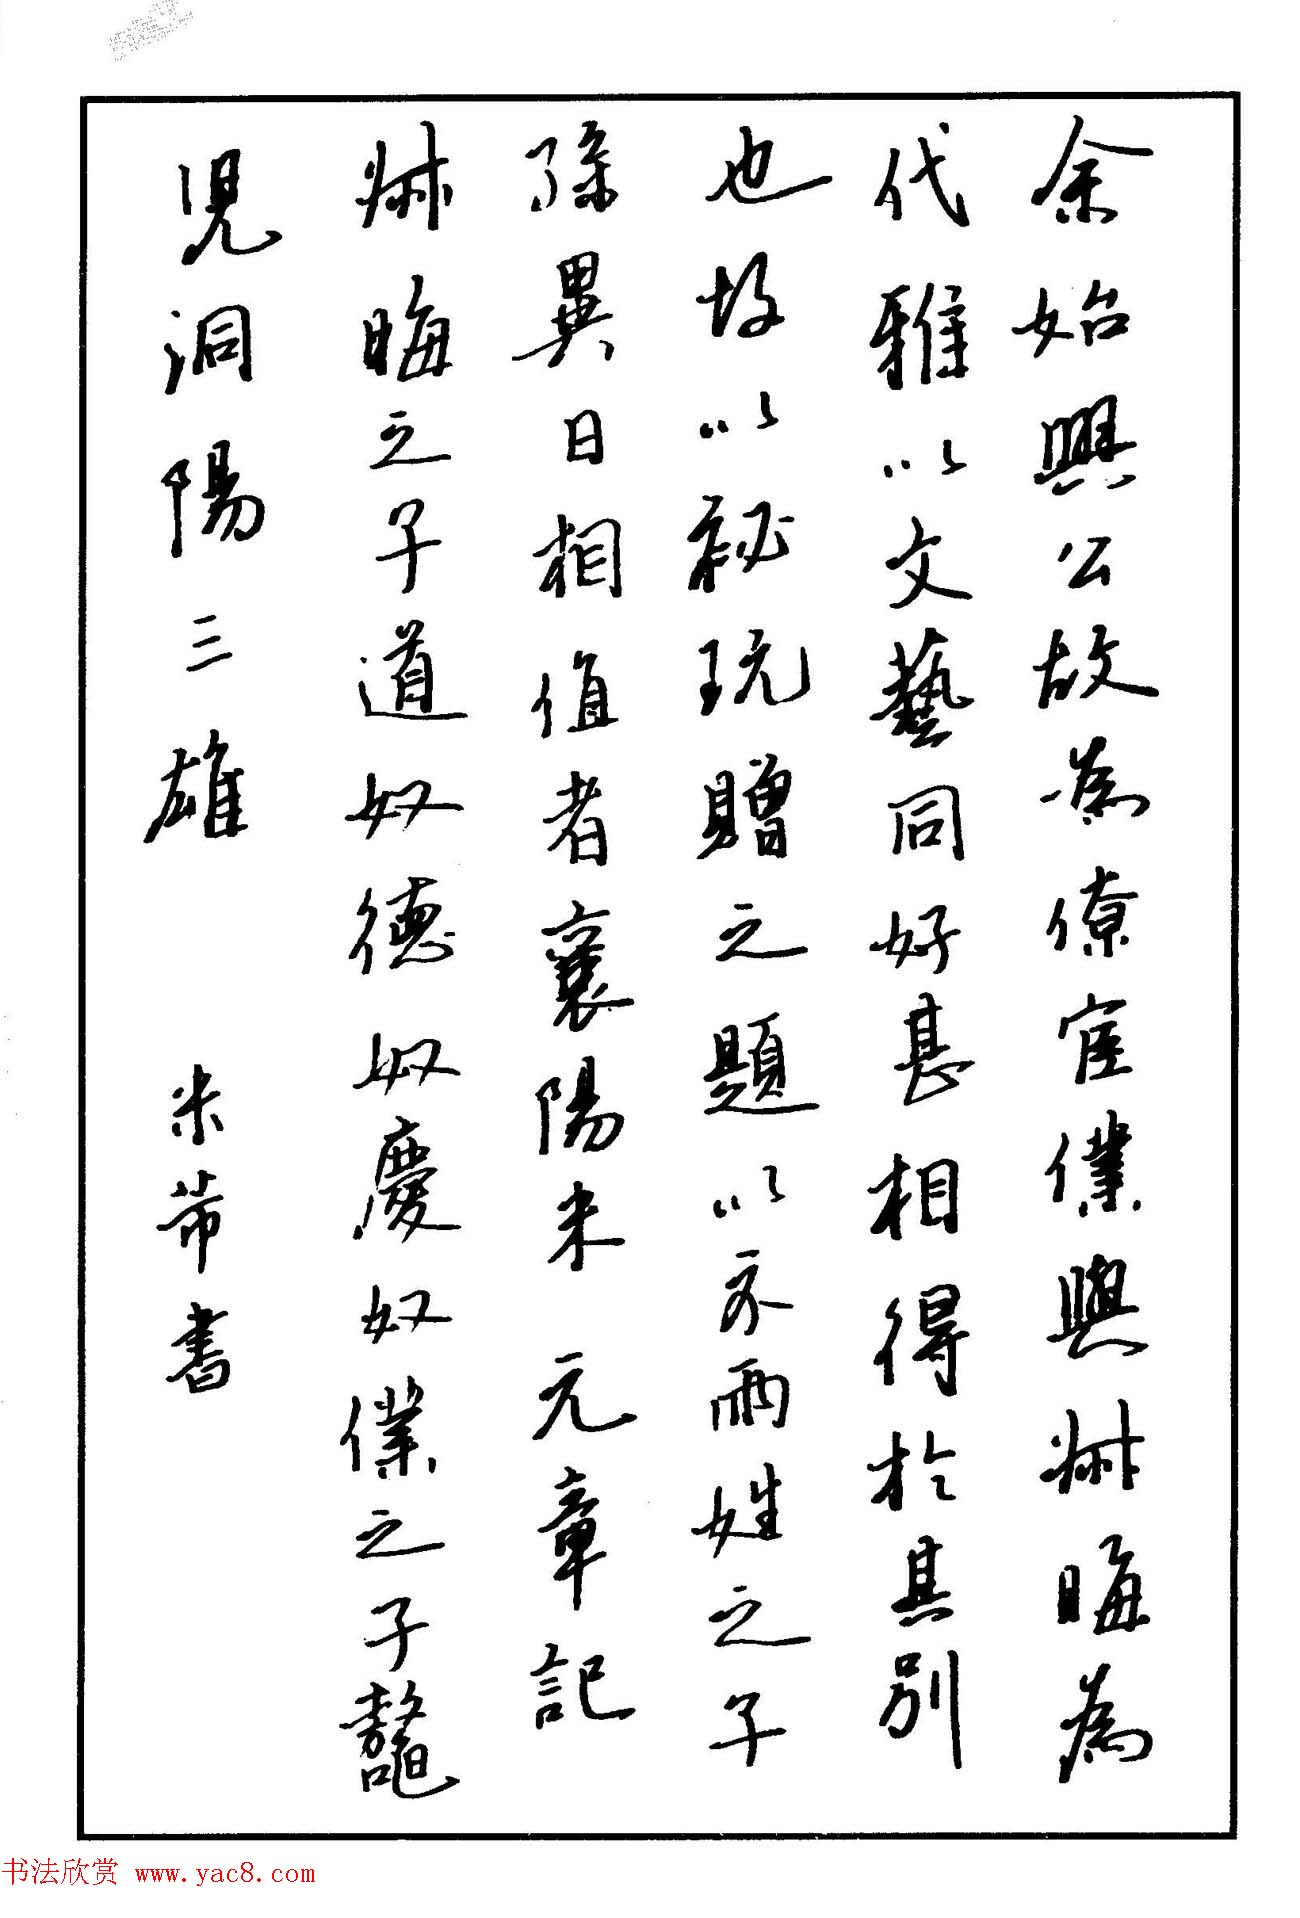 余始興公故為僚宦僕與叔晦為
代雅以文藝同好甚相得於其別
也故以祕玩贈之題以不兩姓之子
孫異日相值者襄陽米元章記
叔晦之子道奴德奴慶奴僕之子鼇
児洞陽三雄 米芾書
书法欣赏 www.yac8.com